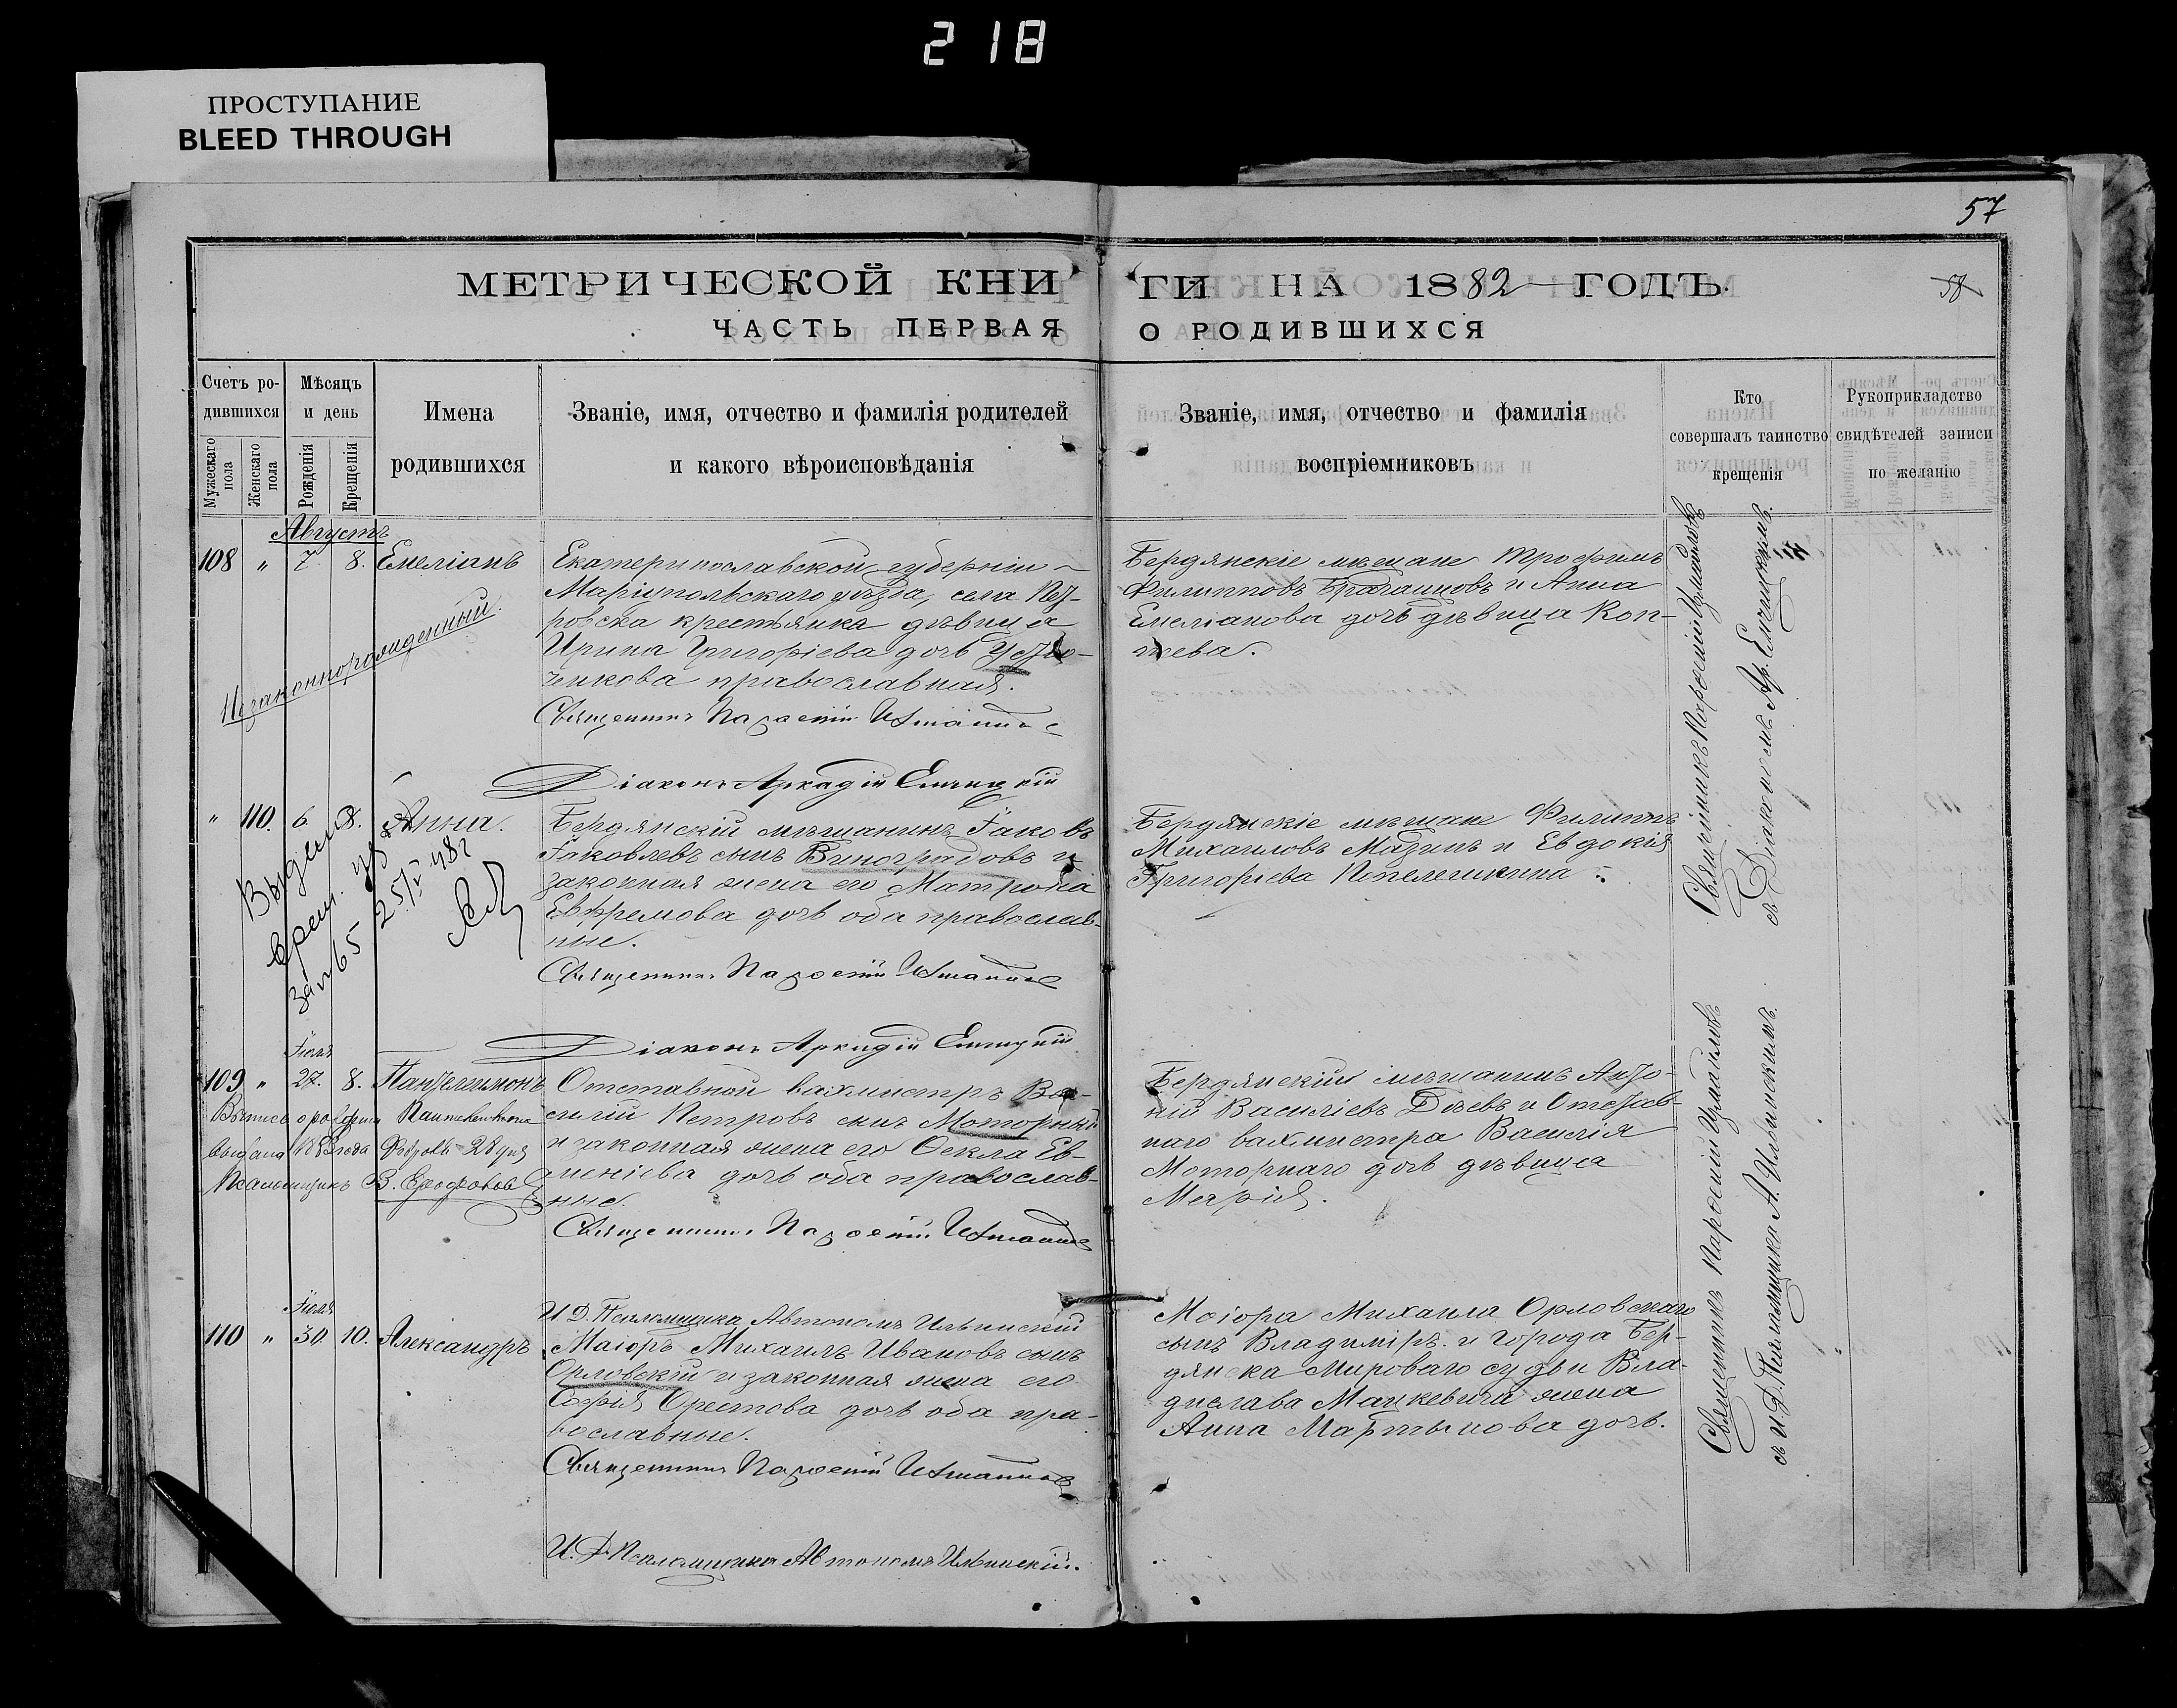 218
ПРОСТУПАНИЕ
BLEED THROUGH
57
МЕТРИЧЕСКОЙ КНИГИ НА 1882 ГОДЪ.
58
ЧАСТЬ ПЕРВАЯ О РОДИВШИХСЯ
Счетъ ро-
дившихся
Мужескаго пола
Женскаго пола
Мѣсяцъ
и день
Рожденія
Крещенія
Имена
родившихся
Званіе, имя, отчество и фамилія родителей
и какого вѣроисповѣданія
Званіе, имя, отчество и фамилія
воспріемниковъ
Кто
совершалъ таинство
крещенія
Рукоприкладство
свидѣтелей записи
по желанію
Августъ
108 " 7. 8. Емеліанъ
Незаконнорожденный.
Екатеринославской губерніи
Маріупольскаго уѣзда, села Пет-
ровска крестьянка дѣвица
Ирина Григоріева дочь
ченкова православная.
Священникъ Парѳеній Измаиловъ
Діаконъ Аркадій Еленицкій
Бердянскіе мѣщане Трофимъ
Филипповъ Брагашовъ и Анна
Емеліанова дочь дѣвица Коп-
Священникъ Парѳеній Измаиловъ
съ Діакономъ Ар. Еленицкимъ.
" 110. 6. 8. Анна.
Зап 65 25/V 48г
Бердянскій мѣщанинъ Іаковъ
Іаковлевъ сынъ Виноградовъ и
законная жена его Матрона
Евфремова дочь оба православ-
ные.
Священникъ Парѳеній Измаиловъ
Діаконъ Аркадій Еленицкій
Бердянскіе мѣщане Филиппъ
Михаиловъ Мазинъ и Евдокія
Григорьева Попелешкина
Іюля
109 " 27. 8. Пантелеимонъ
Выпись о рожденіи Пантелеимона
выдана 1883 года Февраля 28 дня
Псаломщикъ В. Ерофоловъ
Отставной вахмистръ Ва-
силій Петровъ сынъ Моторный
и законная жена его Ѳекла Ев-
меніева дочь оба православ-
ные.
Священникъ Парѳеній Измаиловъ
И. Д. Псаломщика Автономъ Ильинскій
Бердянскій мѣщанинъ Анто-
ній Василіевъ Дѣевъ и Отстав-
наго вахмистра Василія
Моторнаго дочь дѣвица
Марія.
Священникъ Парѳеній Измаиловъ
съ И. Д. Псаломщика А. Ильинскимъ.
Іюля
110 " 30 10. Александръ
Маіоръ Михаилъ Ивановъ сынъ
Орловскій и законная жена его
Софія Орестова дочь оба пра-
вославные.
Священникъ Парѳеній Измаиловъ
И. Д. Псаломщика Автономъ Ильинскій.
Маіора Михаила Орловскаго
сынъ Владиміръ. и города Бер-
дянска Мироваго судьи Вла-
дислава Мацкевича жена
Анна Мартынова дочь.